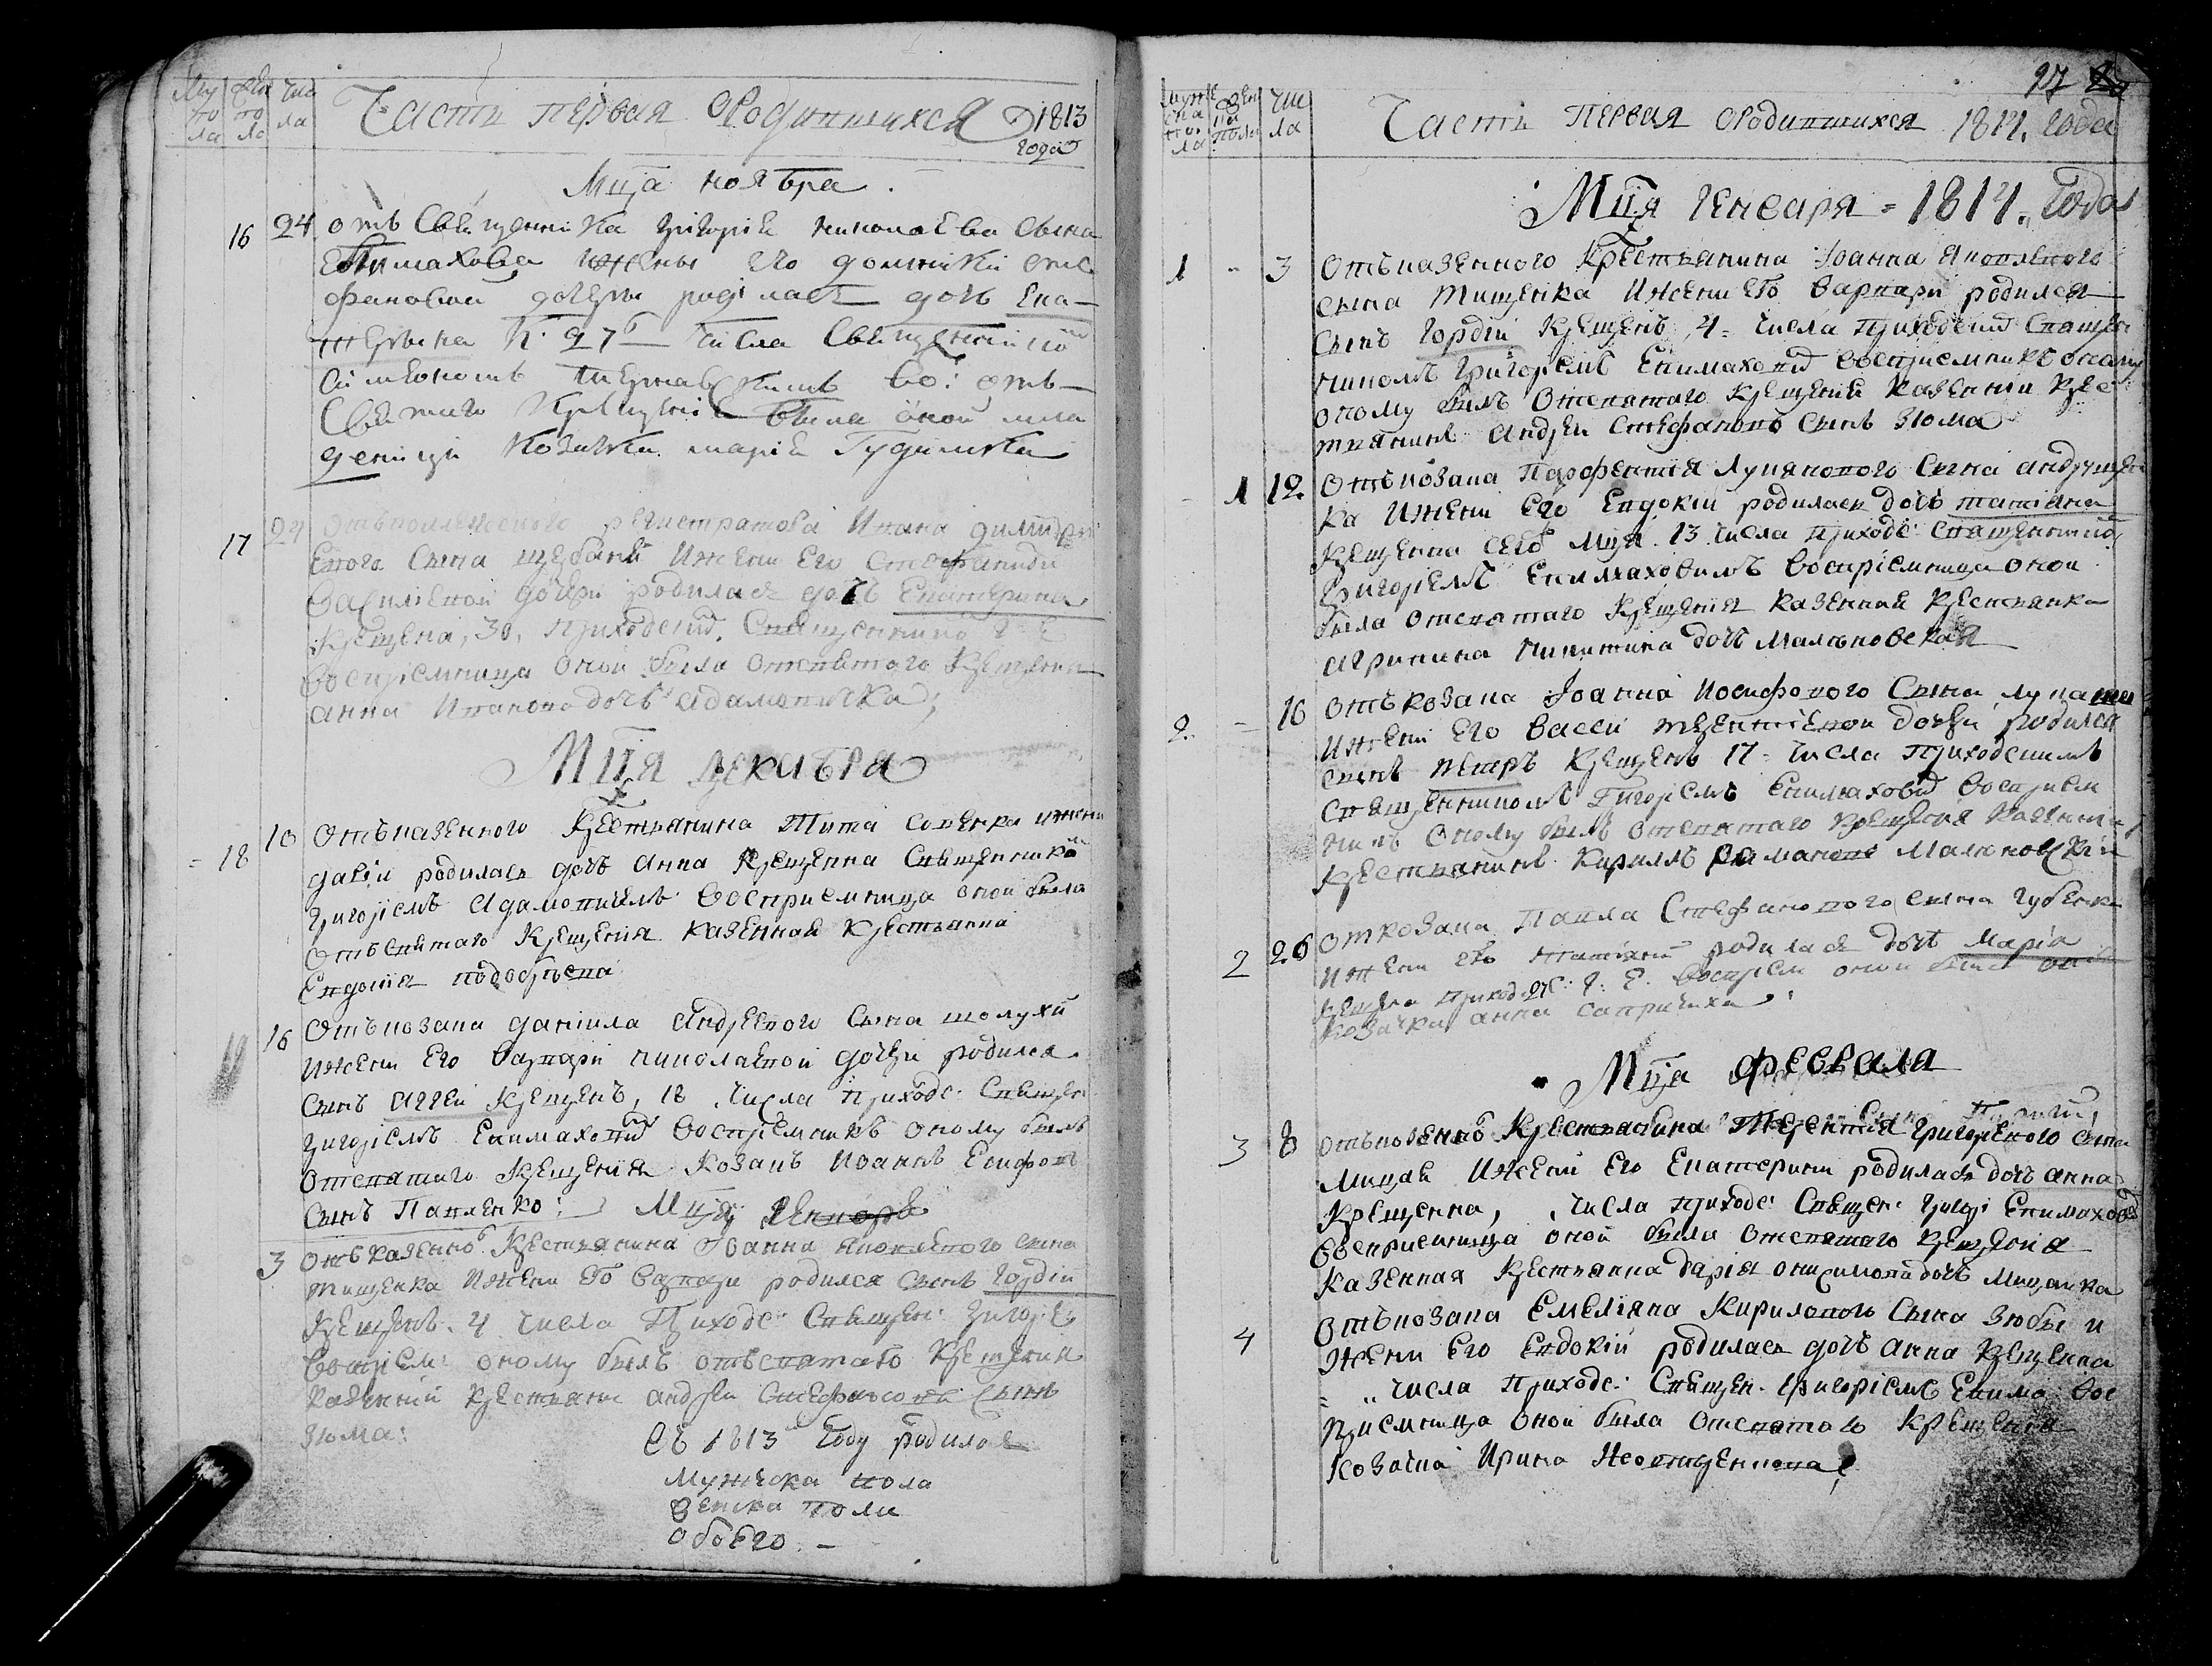 Му по ла
же по ла
чис ла
Часть первая ѡРодившихся 1813 года
Мца ноября
16 24 отъ Священика Григорія николаева сына
Епимахова ижены его домникіи сте
фановой дочери родилась дочь Ека-
терина к: 27 числа Священикомъ
Симеономъ во: отъ
Святаго Крещенія была оной мла
деници Козачка марія Гудимка
17 24 отъколлежского регистратора Ивана димитрі
евого сына Щербани Ижени Его Стефаниди
Василіевой дочери родилась дочь Екатерина
Крещена, 30, приходским Священником Г Е
Воспріемница оной была отсвятаго Крещения
анна Иванова дочь адамовичка;
Мця декабра
18 10 Отъказенного Крестьянина Тита ижени
даріи родилась дочь Анна Крещенна Священником
Григоріемъ адамовичемъ Восприемница оной была
Отъсвятаго Крещения казенная Крестьянка
Евдокия
19 16 Отъкозака даніила Андреевого Сына шолухи
Ижени Его Варвари николаевой дочери родился
Сынъ Аггей Крещенъ, 18 числа приходс: Священ
Григоріемъ Епимахович Воспріемникъ оному былъ
Отсвятаго Крещения Козакъ Иоаннъ Есифовъ
Сынъ Павленко: Мця Генвара
3 Отъказенно Крестьянина Іоанна Яковлевого сына
тищенка Ижени Его Варвари родился сынъ Гордій
Крещенъ 4 числа Приходс: Священ: Григоріе
Воспріем: оному былъ отъсвятаго Крещения
Казенній Крестьянин андрей Стефановъ Сынъ
Зюма:
Въ 1813 Году родилося
Мужеска пола
Женска пола
Обоего –
27
Мужеска пола
Жен ска пола
Чис ла
Часть первая ѡродившихся 1814. года
Мця Генваря = 1814. Года
1 - 3 Отъказенного Крестьянина Іоанна Яковлевого
сына Тищенка Ижени его Варвари родился
сынъ Гордій Крещенъ 4- числа Приходским Священ
никомъ Григоріемъ Епимахович Воспріемникъ
оному былъ Отсвятаго Крещения Казенній Крес
тиянинъ Андрей Стефановъ сынъ Зюма
- 1 12 Отъкозака Парфентия Лукянового Сына андрущен
ка Ижени Его Евдокіи родилась дочь татіяна
Крещенна сего Мця 13 числа приходс: Священникомъ
Григоріемъ Епимаховимъ Воспріемница оной
была Отсвятаго Крещения Казенная Крестьянка
агрипина никитина дочь Малиновская
2. - 16 Отъкозака Іоанна Иосифового Сына
Ижени Его Вассы терентіевой дочери родился
сынъ петръ Крещенъ 17- числа Приходским
Священникомъ Григоріемъ Епимахович Воспріем
никъ Оному былъ отсвятаго Крещения Казенний
Крестьянинъ Кириллъ Романовъ Малиновскій
2 26 Откозака Павла Стефановогo сына Губенка
Ижени его родилася дочь Маріа
Крещена приход: 27 с: Г: Е. Воспріем оной была
козачка анна саприкиха
Мца февраля
3 8 отъказенно Крестьянина Терентія Григоріевого сына
Мицая Ижени Его Екатерини родилась дочь анна
Крещенна, числа приходс: Священ: Григо: Епимахов
Восприемница оной была Отсвятаго Крещения
Казенная Крестьянка дарія онисимова дочь Мицаика
4 Отъкозака Емеліана Кириловогo Сына Зюбы и
Жени Его Евдокій родилась дочь анна Крещенна
числа Приходс: Священ. Григоріемъ Епима: Вос
приемница оной была Отсвятаго Крещения
Козачка Ирина